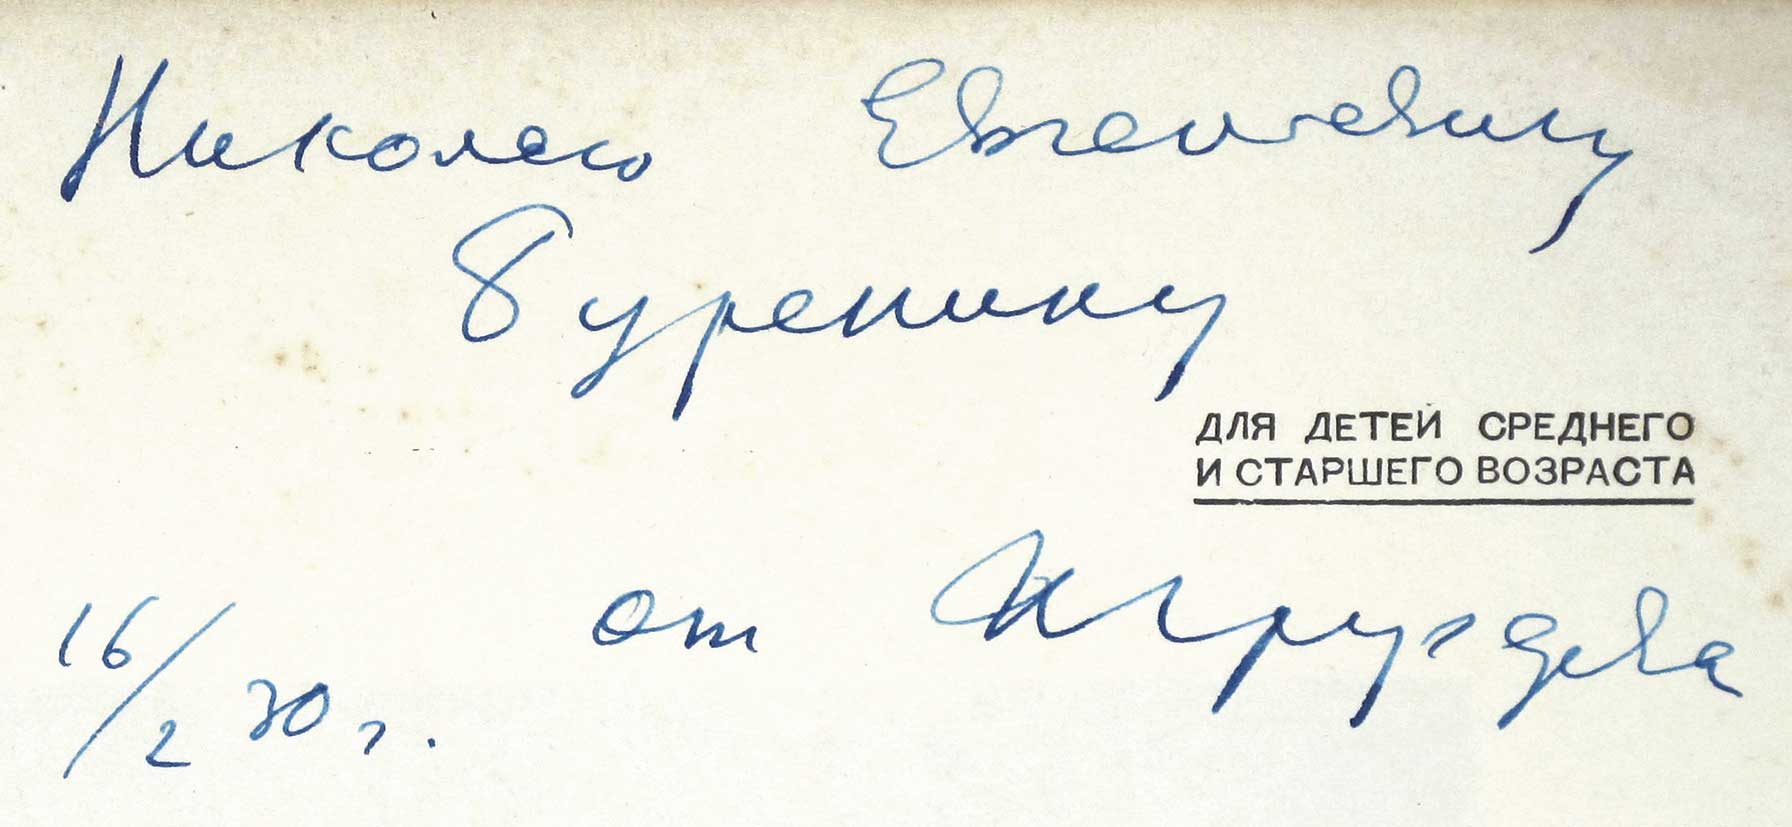 Николаю Евгениевичу
Буренину
ДЛЯ ДЕТЕЙ СРЕДНЕГО
И СТАРШЕГО ВОЗРАСТА
от И Груздева
16/2 30 г.